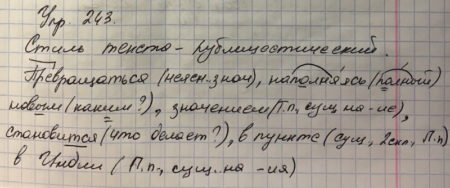 Упр. 243.
Стиль текста - публицистический.
Превращаться (неясн. знач), наполняясь (полный)
новым (каким?), значением (Т.п., сущ на -ие),
становится (что делает?), в пункте (сущ, 2скл, П.п)
в Индии (П.п., сущ. на -ия)